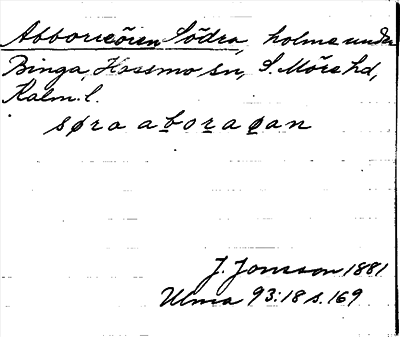 Abborreöien Södra, holme under
Binga, Hossmo sn, S. Möre hd,
Kalm. l.
søra aboraøan
J. Jonsson 1881
Ulma 93:18 s. 169